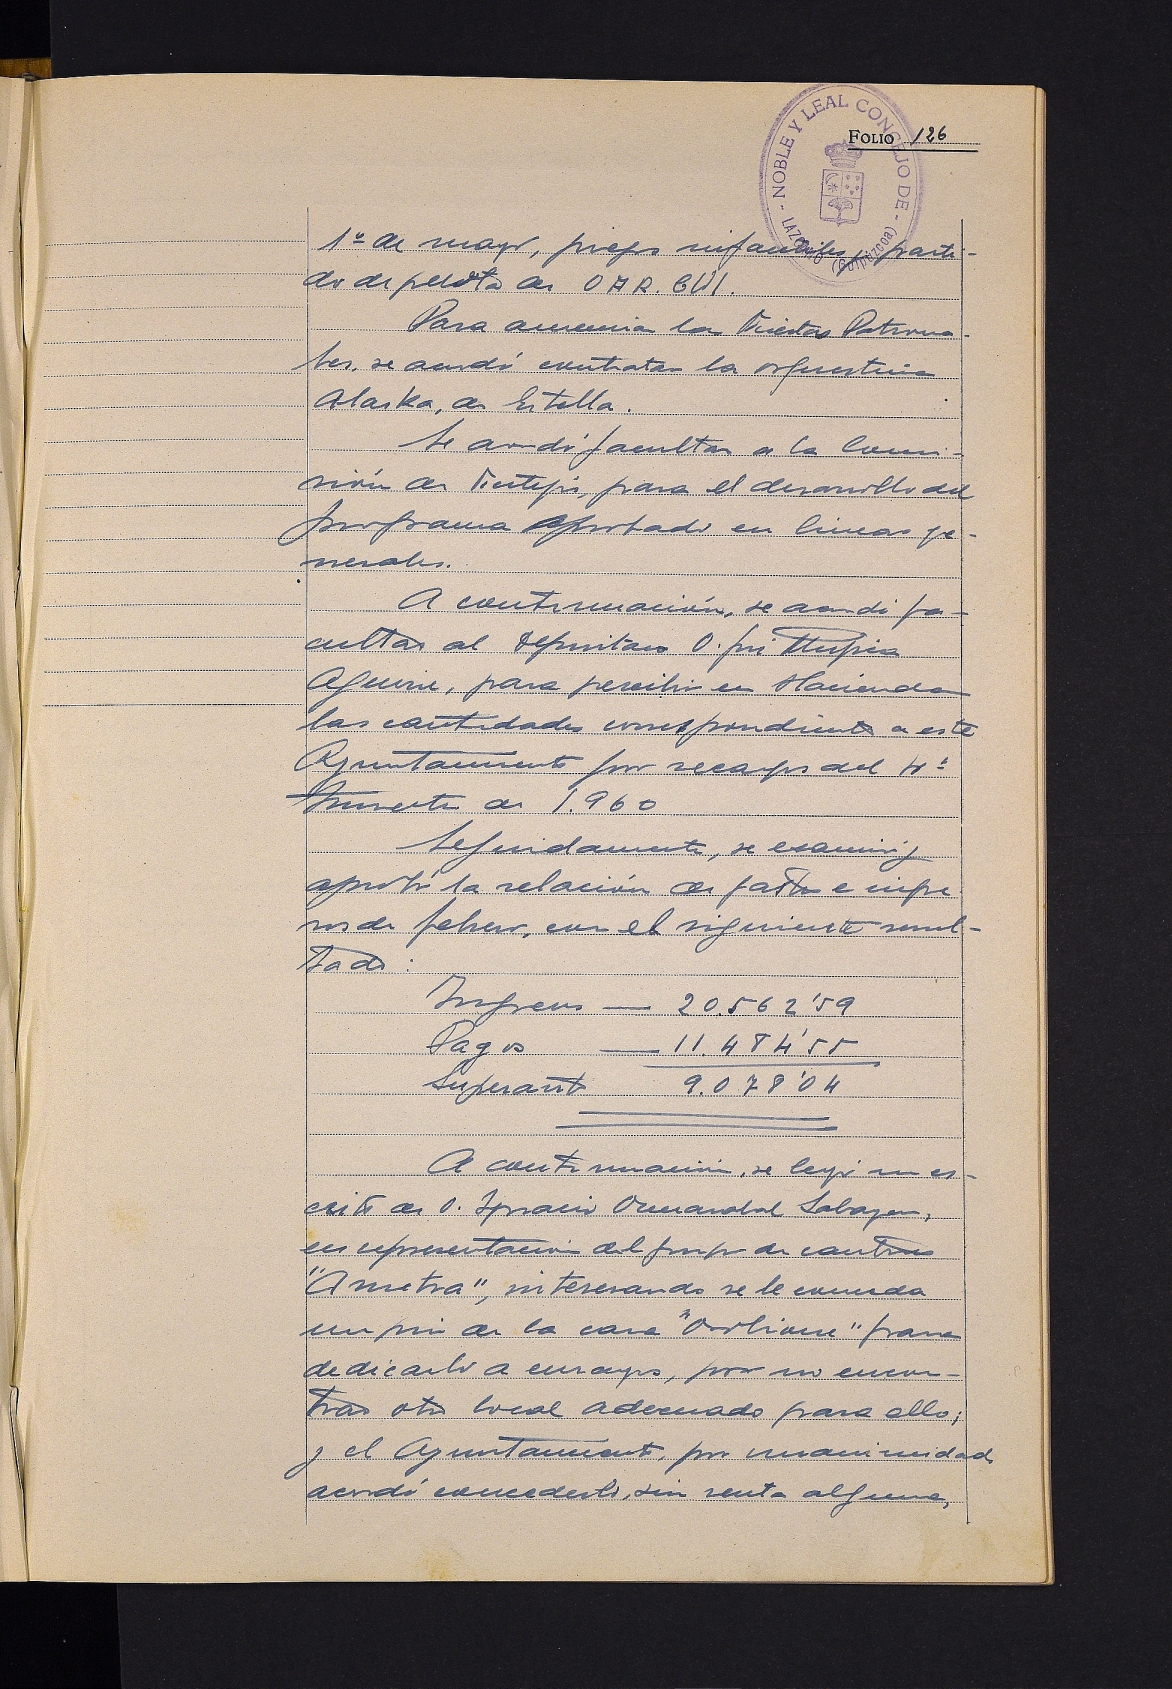 NOBLE Y LEAL CONCEJO DE
LAZCANO (Guipúzcoa)
FOLIO 126
1º de mayo, juegos infantiles, y parti-
do de pelota de O A R. GUI.
Para amenizar las Fiestas Patrona-
les, se acordó contratar la orquestina
Alaska, de Estella.
Se acordó facultar a la Comi-
sión de Festejos, para el desarrollo del
programa aprobado en líneas ge-
nerales.
A continuación, se acordó fa-
cultar al Depositario D. José
Aguirre, para percibir en Hacienda
las cantidades correspondientes a este
Ayuntamiento por recargos del 4º
trimestre de 1.960
Seguidamente, se examinó y
aprobó la relación de gastos e ingre
sos de febrero, con el siguiente resul-
tado:
Ingresos — 20.562'59
Pagos — 11.484'55
Superavit 9.078'04
A continuación, se leyó un es-
crito de D. Ignacio
en representación del grupo de cantores
"Ametsa", interesando se le conceda
un piso de la casa para
dedicarlo a ensayos, por no encon-
trar otro local adecuado para ello;
y el Ayuntamiento, por unanimidad
acordó concederlo, sin renta alguna,